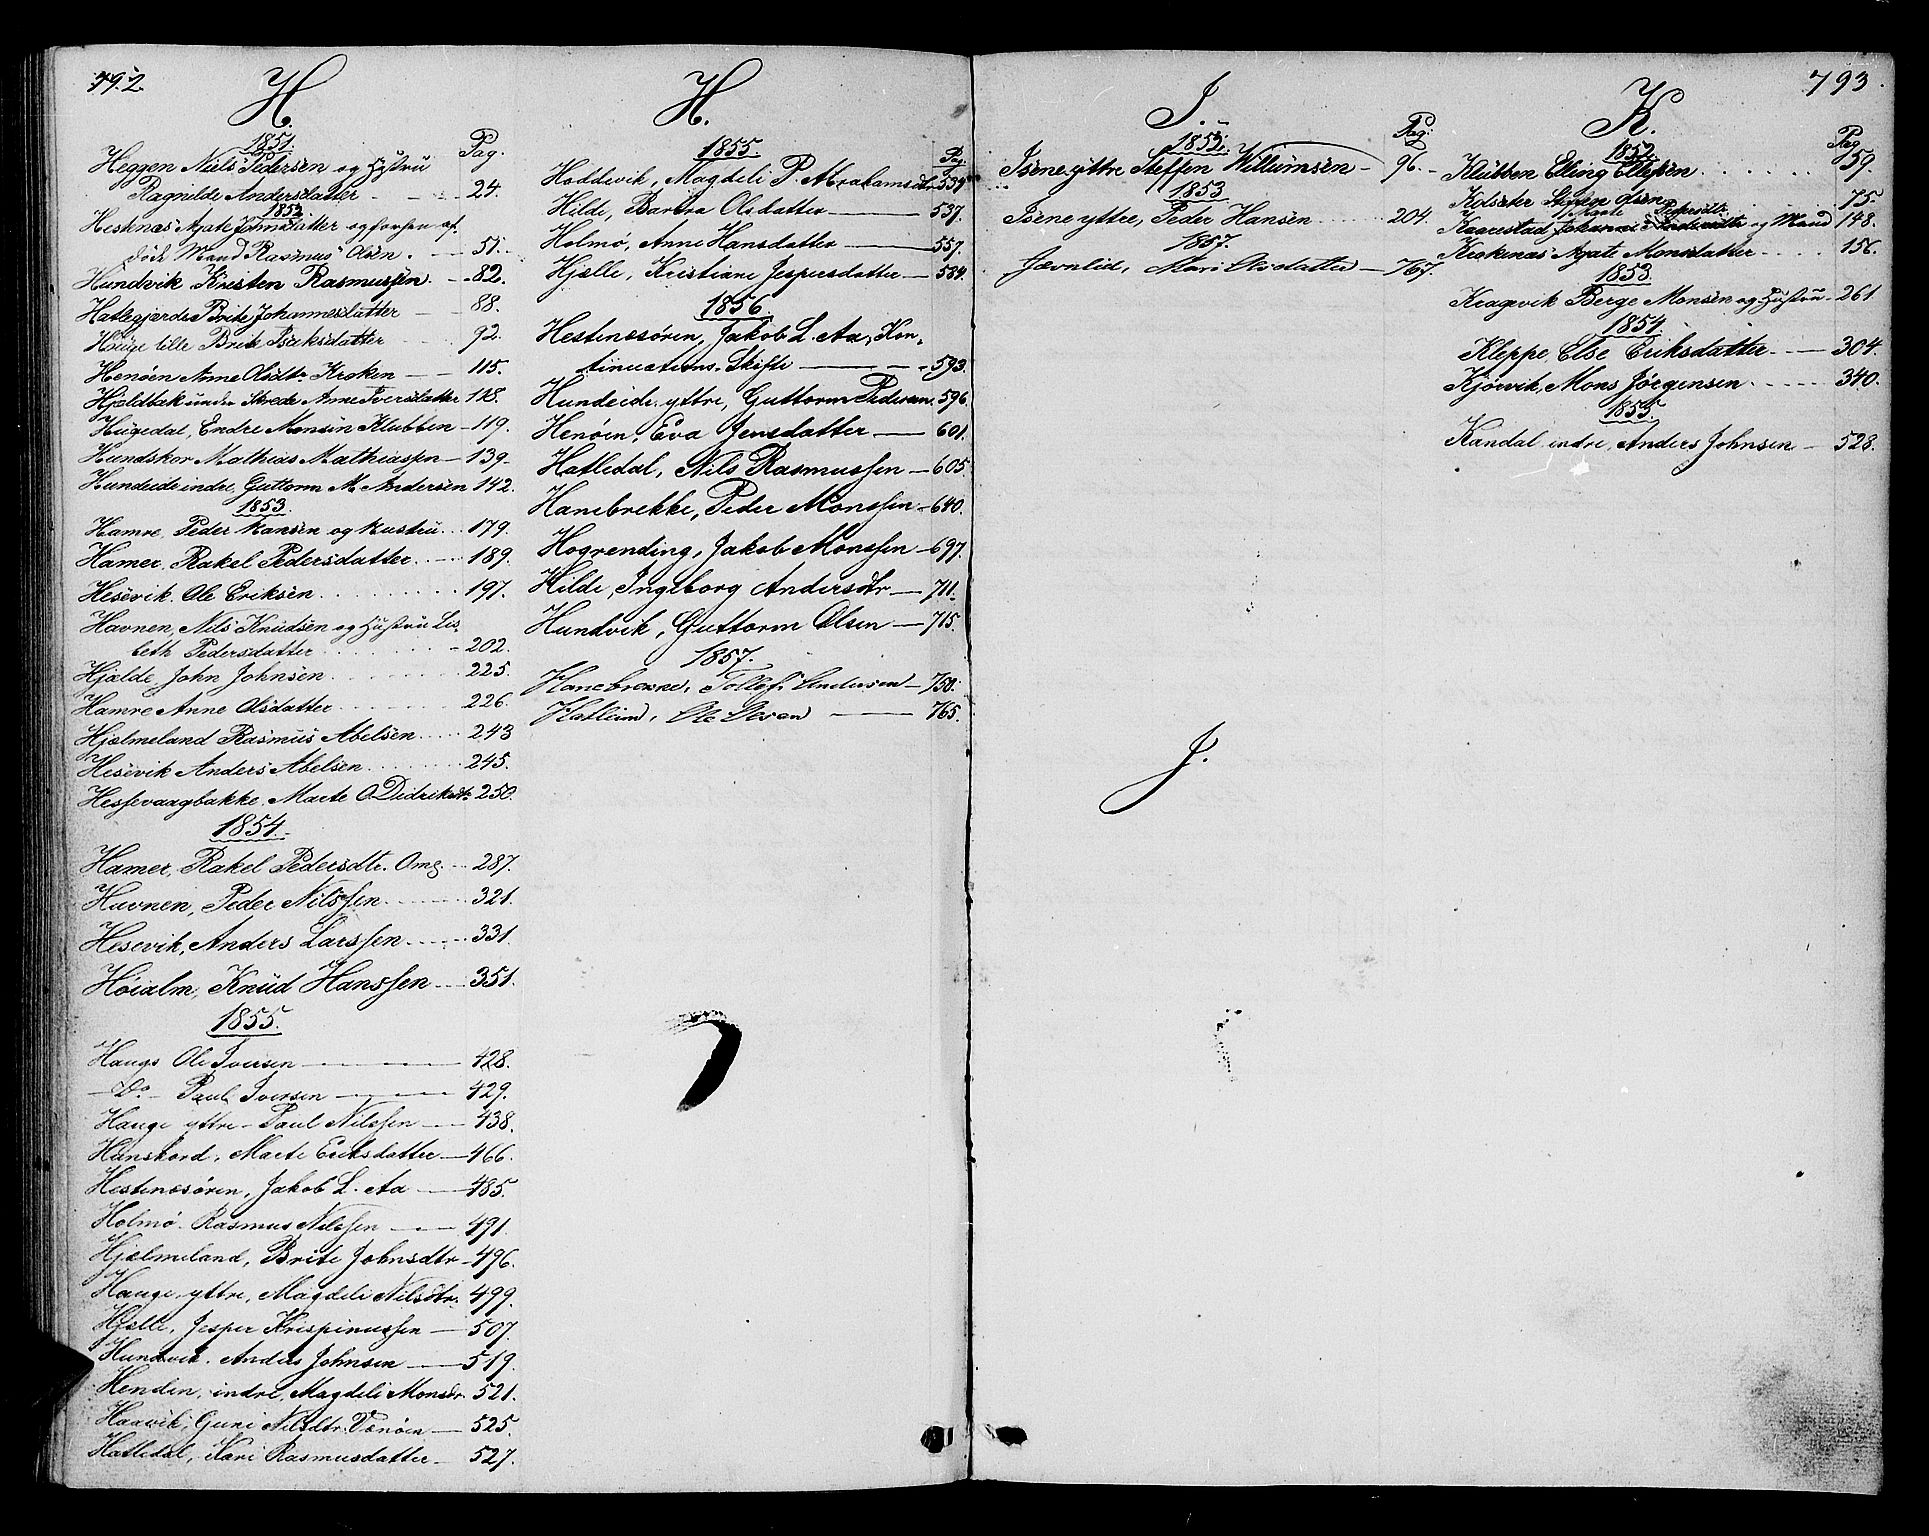 792.
H.
1851.
Pag.
Heggen Niels Pedersen og Hustru
Ragnilde Andersdatter 24.
1852.
Hestenæs Agate Jonsdatter og forhen af-
döde Mand Rasmus Olsen. 51.
Hundvik Kristen Rasmussen. 82.
Hatlegjerde Brite Johannesdatter 88.
Hauge lille Brite Isaksdatter 92.
Henöen Anne Olsdtr Kroken 115.
Hjældbak under Strede Anne Iversdatter 118.
Haugedal, Endre Monsen Klubben 119.
Hundskor Mathias Mathiassen 139.
Hundeide indre, Guttorm M. Andersen 142.
1853.
Hamre, Peder Hansen og Hustru 179.
Hamer, Rakel Pedersdatter 189.
Hesevik. Ole Eriksen 197.
Havnen, Nils Knudsen og Hustru Lis-
beth Pedersdatter 202.
Hjelde, John Johnsen 225.
Hamre Anne Olsdatter 226.
Hjelmeland Rasmus Abelsen 243
Hesevik Anders Abelsen 245.
Hessevaagbakke. Marte O. Didriksdtr 250.
1854.
Hamer, Rakel Pedersdtr. Omg. 287.
Havnen, Peder Nilssen 321.
Hesevik, Anders Larssen 331.
Höialm, Knud Hanssen 351.
1855.
Hauge Ole Iversen 428.
Do Paul Iversen 429.
Hauge yttre Paul Nilssen 438.
Hunskord, Marte Eriksdatter 466.
Hestenessören, Jakob L. Aa 485.
Holmö. Rasmus Nilssen 491.
Hjelmeland, Brite Johnsdtr 496.
Hauge yttre, Magdeli Nilsdtr. 499.
Hjelle, Jesper Krispinussen 507.
Hundvik. Anders Johnsen 519.
Henden, indre, Magdeli Monsdr. 521.
Haavik, Guni Nilsdtr. 525.
Hatledal, Kari Rasmusdatter 527.
H.
1855.
Pag
Hoddevik, Magdeli P. Abrahamsdtr 534.
Hilde, Barbra Olsdatter 537.
Holmö, Anne Hansdatter 557.
Hjelle, Kristiane Jespersdatter 584.
1856.
Hestenessören, Jakob L. Aa, Kon-
tinuations-Skifte 593.
Hundeide yttre, Guttorm Pedersen 596.
Henöen, Eva Jensdatter 601.
Hatledal, Nils Rasmussen 605.
Hanebrekke, Peder Monssen 640.
Hogrending, Jakob Monssen 697.
Hilde, Ingeborg Andersdtr 711.
Hundvik, Guttorm Olsen 715.
1857.
Hanebrekke, Tollef Andersen 750.
Hatleim, Ole Olsen 765.
793.
I.
1852.
Pag:
Isene yttre Steffen Willumsen 96.
1853
Isene yttre, Peder Hansen 204.
1857.
Jævnlid, Mari Olsdatter 767.
J.
K.
1852.
Pag
Klubben Elling Ellefsen 59.
Kolseter Olsen 75.
Marte Pedersdtr.
Kaarestad Johanne og Mand 148.
Krokenæs Agate Monsdatter 156.
1853.
Kragevik Berge Monsen og Hustru 261
1854.
Kleppe, Else Eriksdatter 304.
Kjörvik, Mons Jörgensen 340.
1855.
Kandal indre, Anders Johnsen 528.